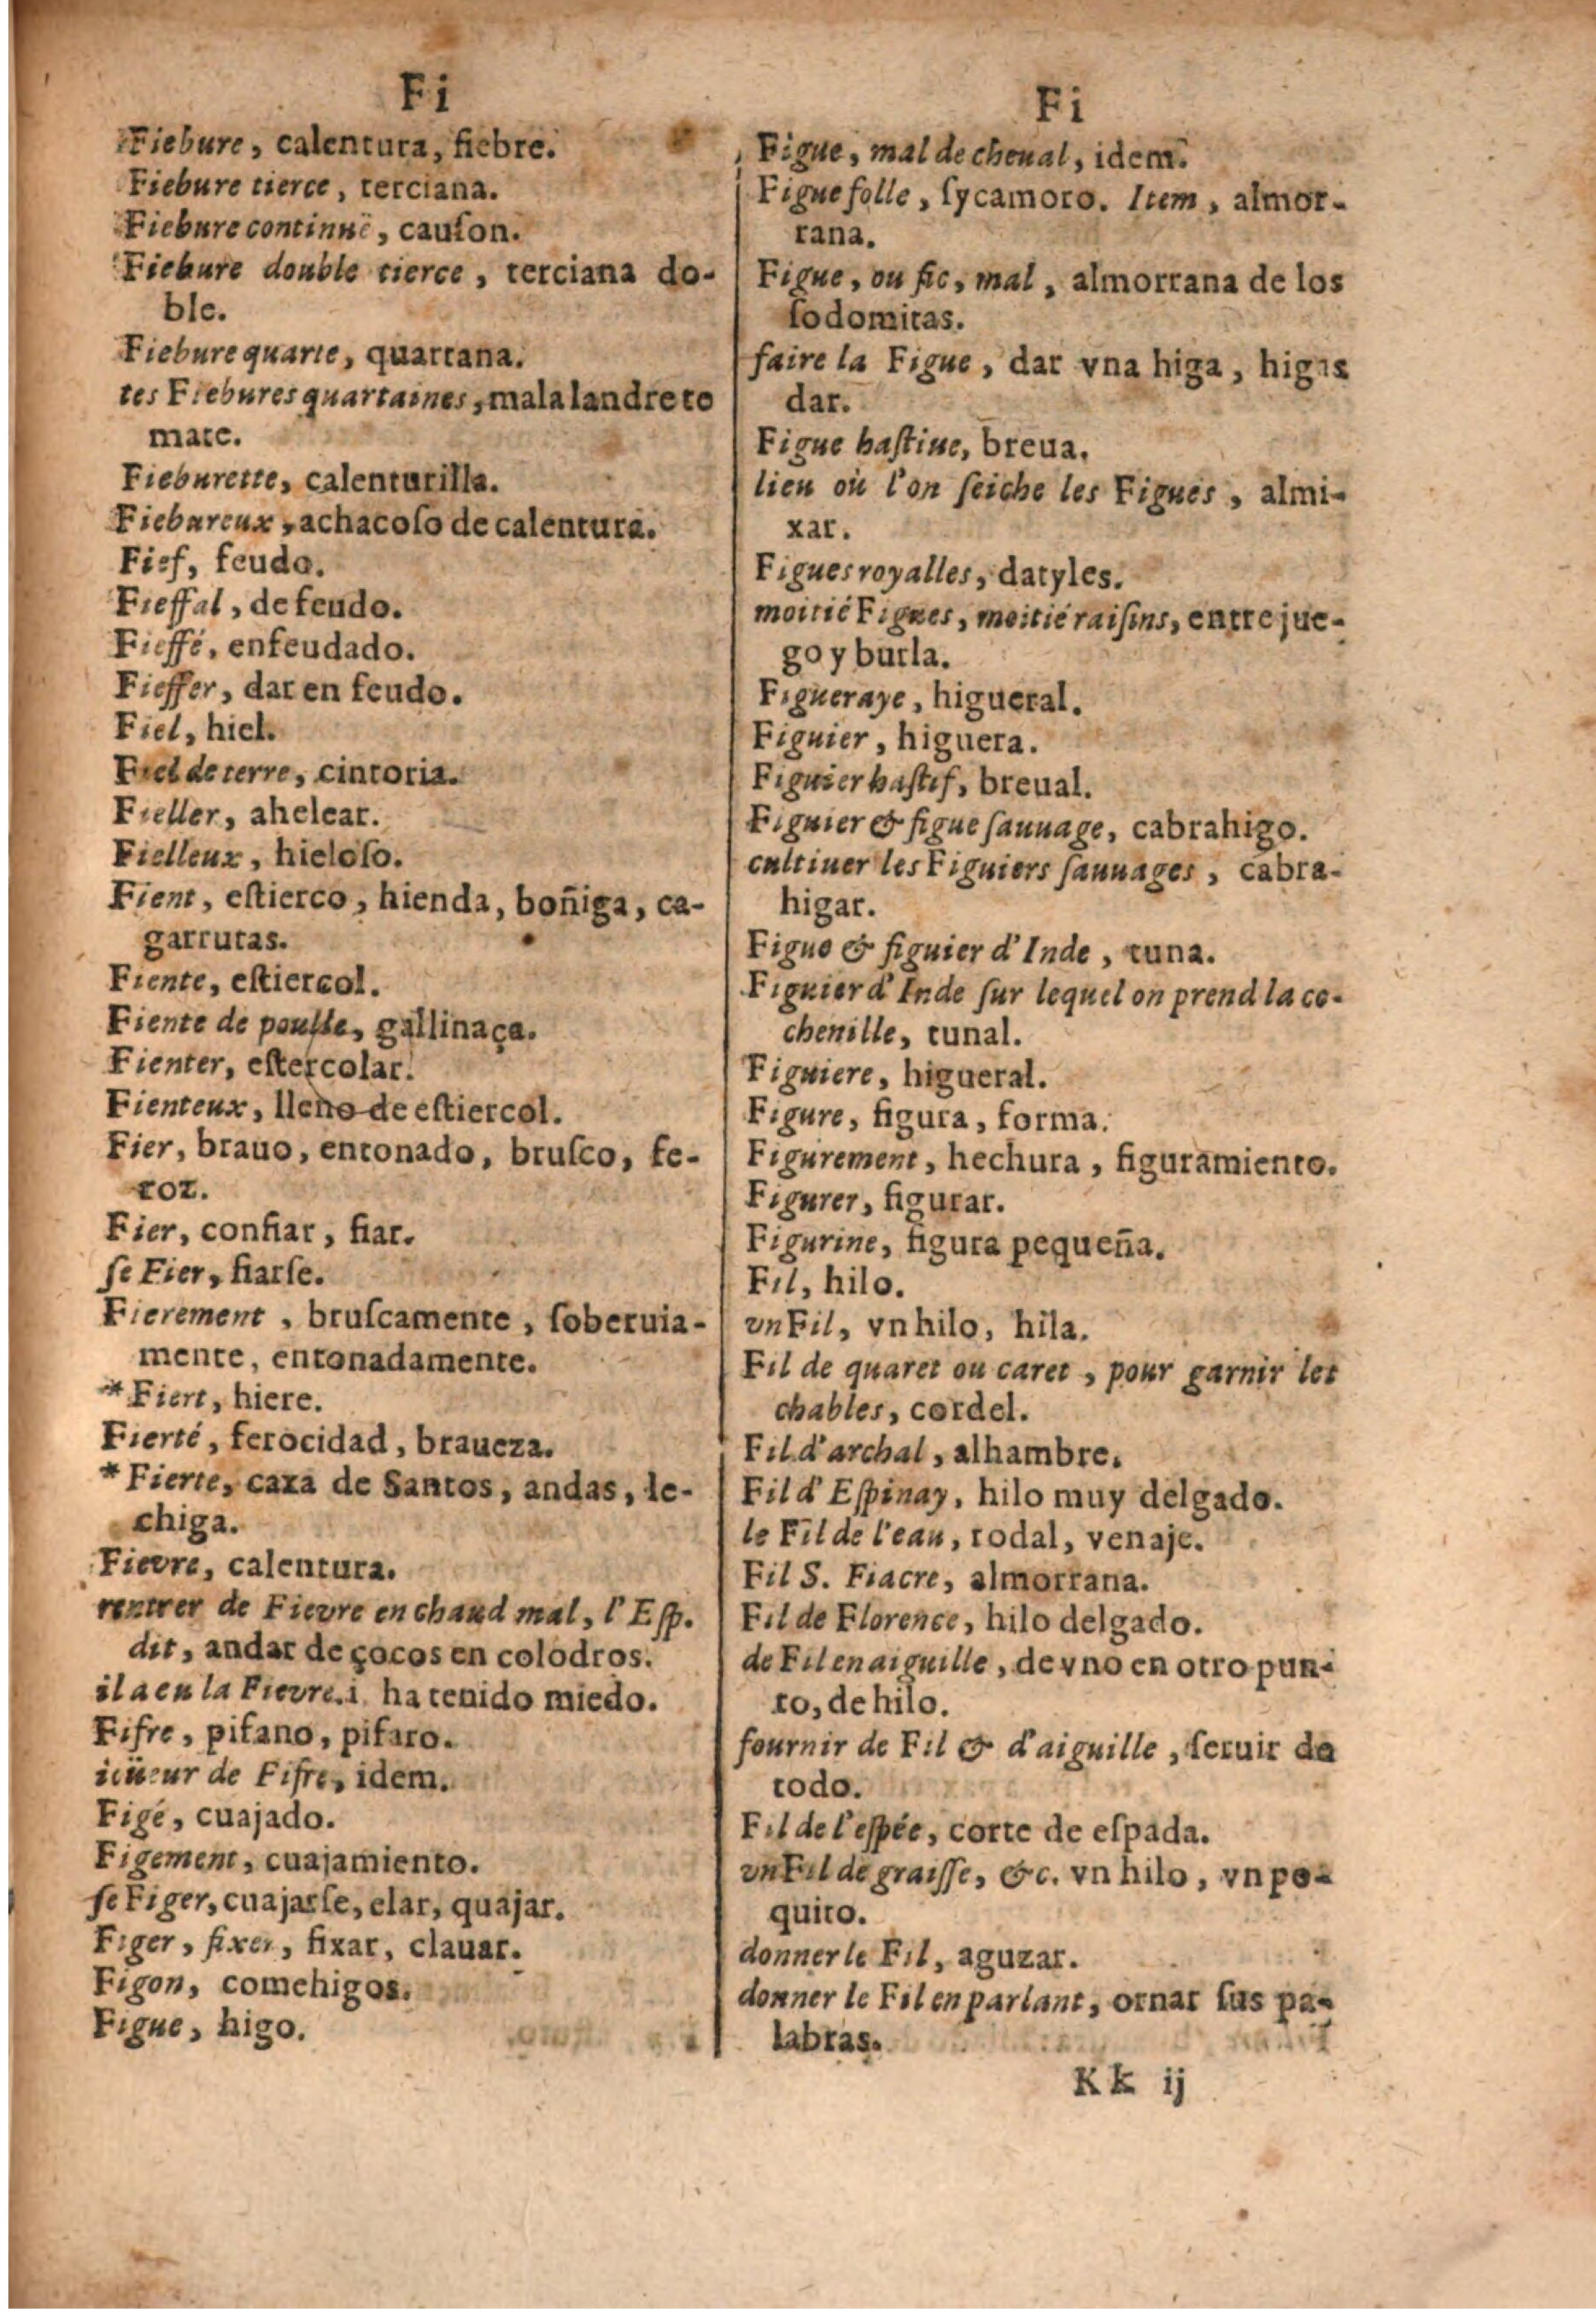 Fi
Fiebure, calentura, fiebre.
Fiebure tierce, terciana.
Fiebure continuë, cauſon.
Fiebure double tierce, terciana do-
ble.
Fiebure quarte, quartana.
tes Fiebures quartaines, mala landre te
mate.
Fieburette, calenturilla.
Fiebureux, achacoſo de calentura.
Fief, feudo.
Fieffal, de feudo.
Fieffé, enfeudado.
Fieffer, dar en feudo.
Fiel, hiel.
Fiel de terre, cintoria.
Fieller, ahelear.
Fielleux, hieloſo.
Fient, eſtierco, hienda, boñiga, ca-
garrutas.
Fiente, eſtiercol.
Fiente de poulle, gallinaça.
Fienter, eſtercolar.
Fienteux, lleno de eſtiercol.
Fier, brauo, entonado, bruſco, fe-
roz.
Fier, confiar, fiar.
ſe Fier, fiarſe.
Fierement, bruſcamente, ſoberuia-
mente, entonadamente.
*Fiert, hiere.
Fierté, ferocidad, braueza.
*Fierte, caxa de Santos, andas, le-
chiga.
Fievre, calentura.
rentrer de Fievre en chaud mal, l'Eſp.
dit, andar de çocos en colodros.
il a eu la Fievre.i. ha tenido miedo.
Fifre, pifano, pifaro.
ioüeur de Fifre, idem.
Figé, cuajado.
Figement, cuajamiento.
ſe Figer, cuajarſe, elar, quajar.
Figer, fixer, fixar, clauar.
Figon, comehigos.
Figue, higo.
Fi
Figue, mal de cheual, idem.
Figue folle, ſycamoro. Item, almor-
rana.
Figue, ou fic, mal, almorrana de los
ſodomitas.
faire la Figue, dar vna higa, higas
dar.
Figue haſtiue, breua.
lieu où l'on ſeiche les Figues, almi-
xar.
Figues royalles, datyles.
moitié Figues, moitié raiſins, entre jue-
go y burla.
Figueraye, higueral.
Figuier, higuera.
Figuier haſtif, breual.
Figuier & figue ſauuage, cabrahigo.
cultiuer les Figuiers ſauuages, cabra-
higar.
Figue & figuier d'Inde, tuna.
Figuier d'Inde ſur lequel on prend la co-
chenille, tunal.
Figuiere, higueral.
Figure, figura, forma.
Figurement, hechura, figuramiento.
Figurer, figurar.
Figurine, figura pequeña.
Fil, hilo.
vn Fil, vn hilo, hila.
Fil de quaret ou caret, pour garnir les
chables, cordel.
Fil d'archal, alhambre.
Fil d'Eſpinay, hilo muy delgado.
le Fil de l'eau, rodal, venaje.
Fil S. Fiacre, almorrana.
Fil de Florence, hilo delgado.
de Fil en aiguille, de vno en otro pun-
to, de hilo.
fournir de Fil & d'aiguille, ſeruir de
todo.
Fil de l'eſpée, corte de eſpada.
vn Fil de graiſſe, &c. vn hilo, vn po-
quito.
donner le Fil, aguzar.
donner le Fil en parlant, ornar ſus pa-
labras.
Kk ij